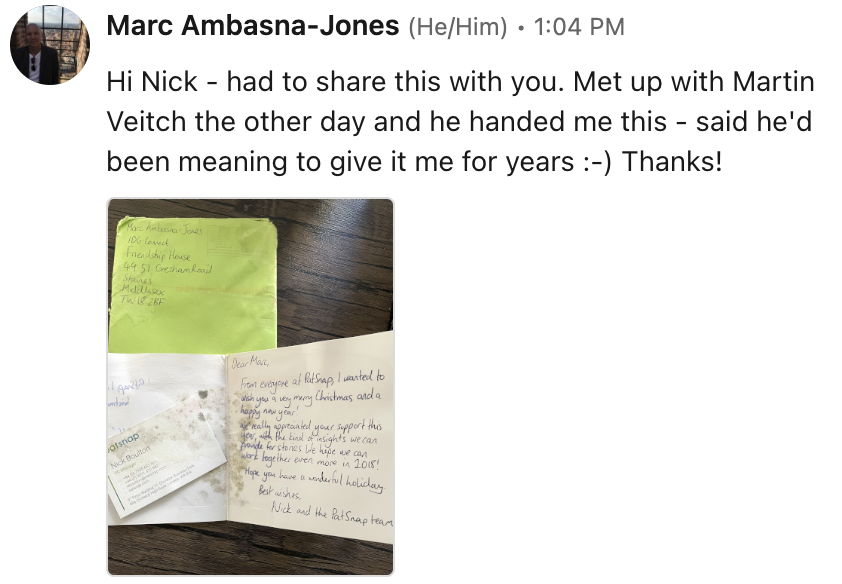 Marc Ambasna-Jones (He/Him) • 1:04 PM
Hi Nick - had to share this with you. Met up with Martin
Veitch the other day and he handed me this - said he'd
been meaning to give it me for years :-) Thanks!
Marc Ambasna-Jones
IDG Connect
Friendship House
49-51 Gresham Road
Staines
Middlesex
TW18 2BF
patsnap
Nick Boulton
PR Manager
Dear Marc,
From everyone at PatSnap, I wanted to
wish you a very merry Christmas and a
happy new year!
We really appreciated your support this
year, with the kind of insights we can
provide for stories. We hope we can
work together even more in 2018!
Hope you have a wonderful holiday
Best wishes,
Nick and the PatSnap team